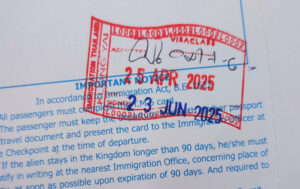 IMMIGRATION THAILAND
VISA CLASS
ADMITTED
25 APR 2025
23 JUN 2025
IMPORTANT NO
In accordance Immigration Act, B.E.
All passengers must
The passenger must keep the passport
travel document and present the card to the Immigration officer at
e Checkpoint at the time of departure.
If the alien stays in the Kingdom longer than 90 days, he/she must
otify in writing at the nearest Immigration Office, concerning place of
as soon as possible upon expiration of 90 days. And required to